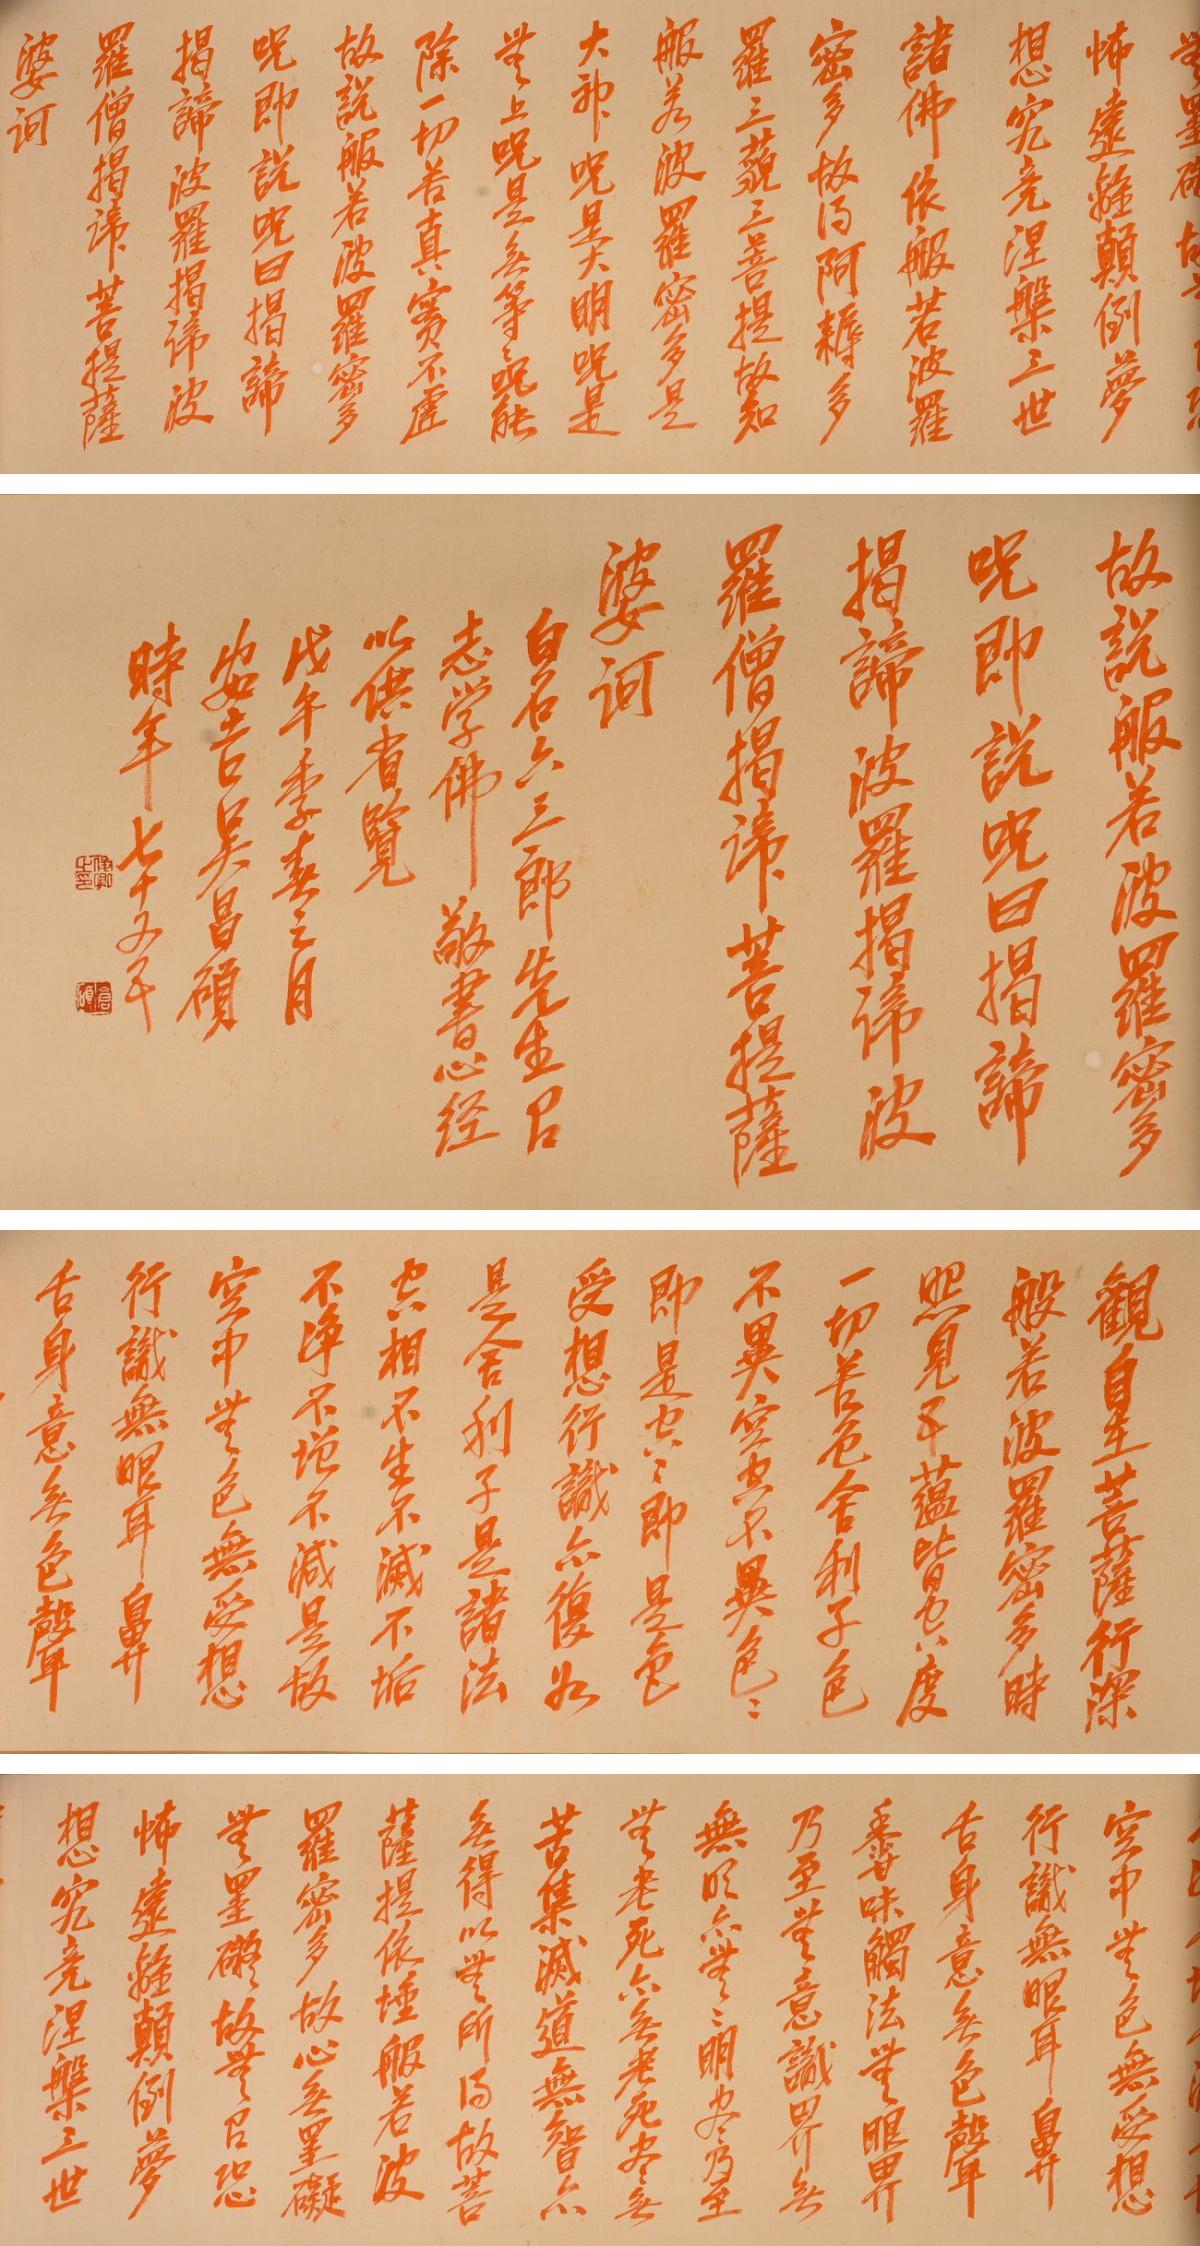 無罣礙故無
怖遠離顛倒夢
想究竟涅槃三世
諸佛依般若波羅
密多故得阿耨多
羅三藐三菩提故知
般若波羅密多是
大神咒是大明咒是
無上咒是無等﹅咒能
除一切苦真實不虛
故說般若波羅密多
咒即說咒曰揭諦
揭諦波羅揭諦波
羅僧揭諦菩提薩
婆訶
故說般若波羅密多
咒即說咒曰揭諦
揭諦波羅揭諦波
羅僧揭諦菩提薩
婆訶
白石六三郎先生有
志学佛敬書心经
以供省覽
戊午季春之月
安吉吳昌碩
時年七十又五
觀自在菩薩行深
般若波羅密多時
照見五蘊皆空度
一切苦厄舍利子色
不異空空不異色﹅
即是空﹅即是色
受想行識亦復如
是舍利子是諸法
空相不生不滅不垢
不净不增不減是故
空中無色無受想
行識無眼耳鼻
舌身意無色聲
空中無色無受想
行識無眼耳鼻
舌身意無色聲
香味觸法無眼界
乃至無意識界無
無明亦無﹅明盡乃至
無老死亦無老死盡無
苦集滅道無智亦
無得以無所得故菩
薩提依埵般若波
羅密多故心無罣礙
無罣礙故無有恐
怖遠離顛倒夢
想究竟涅槃三世